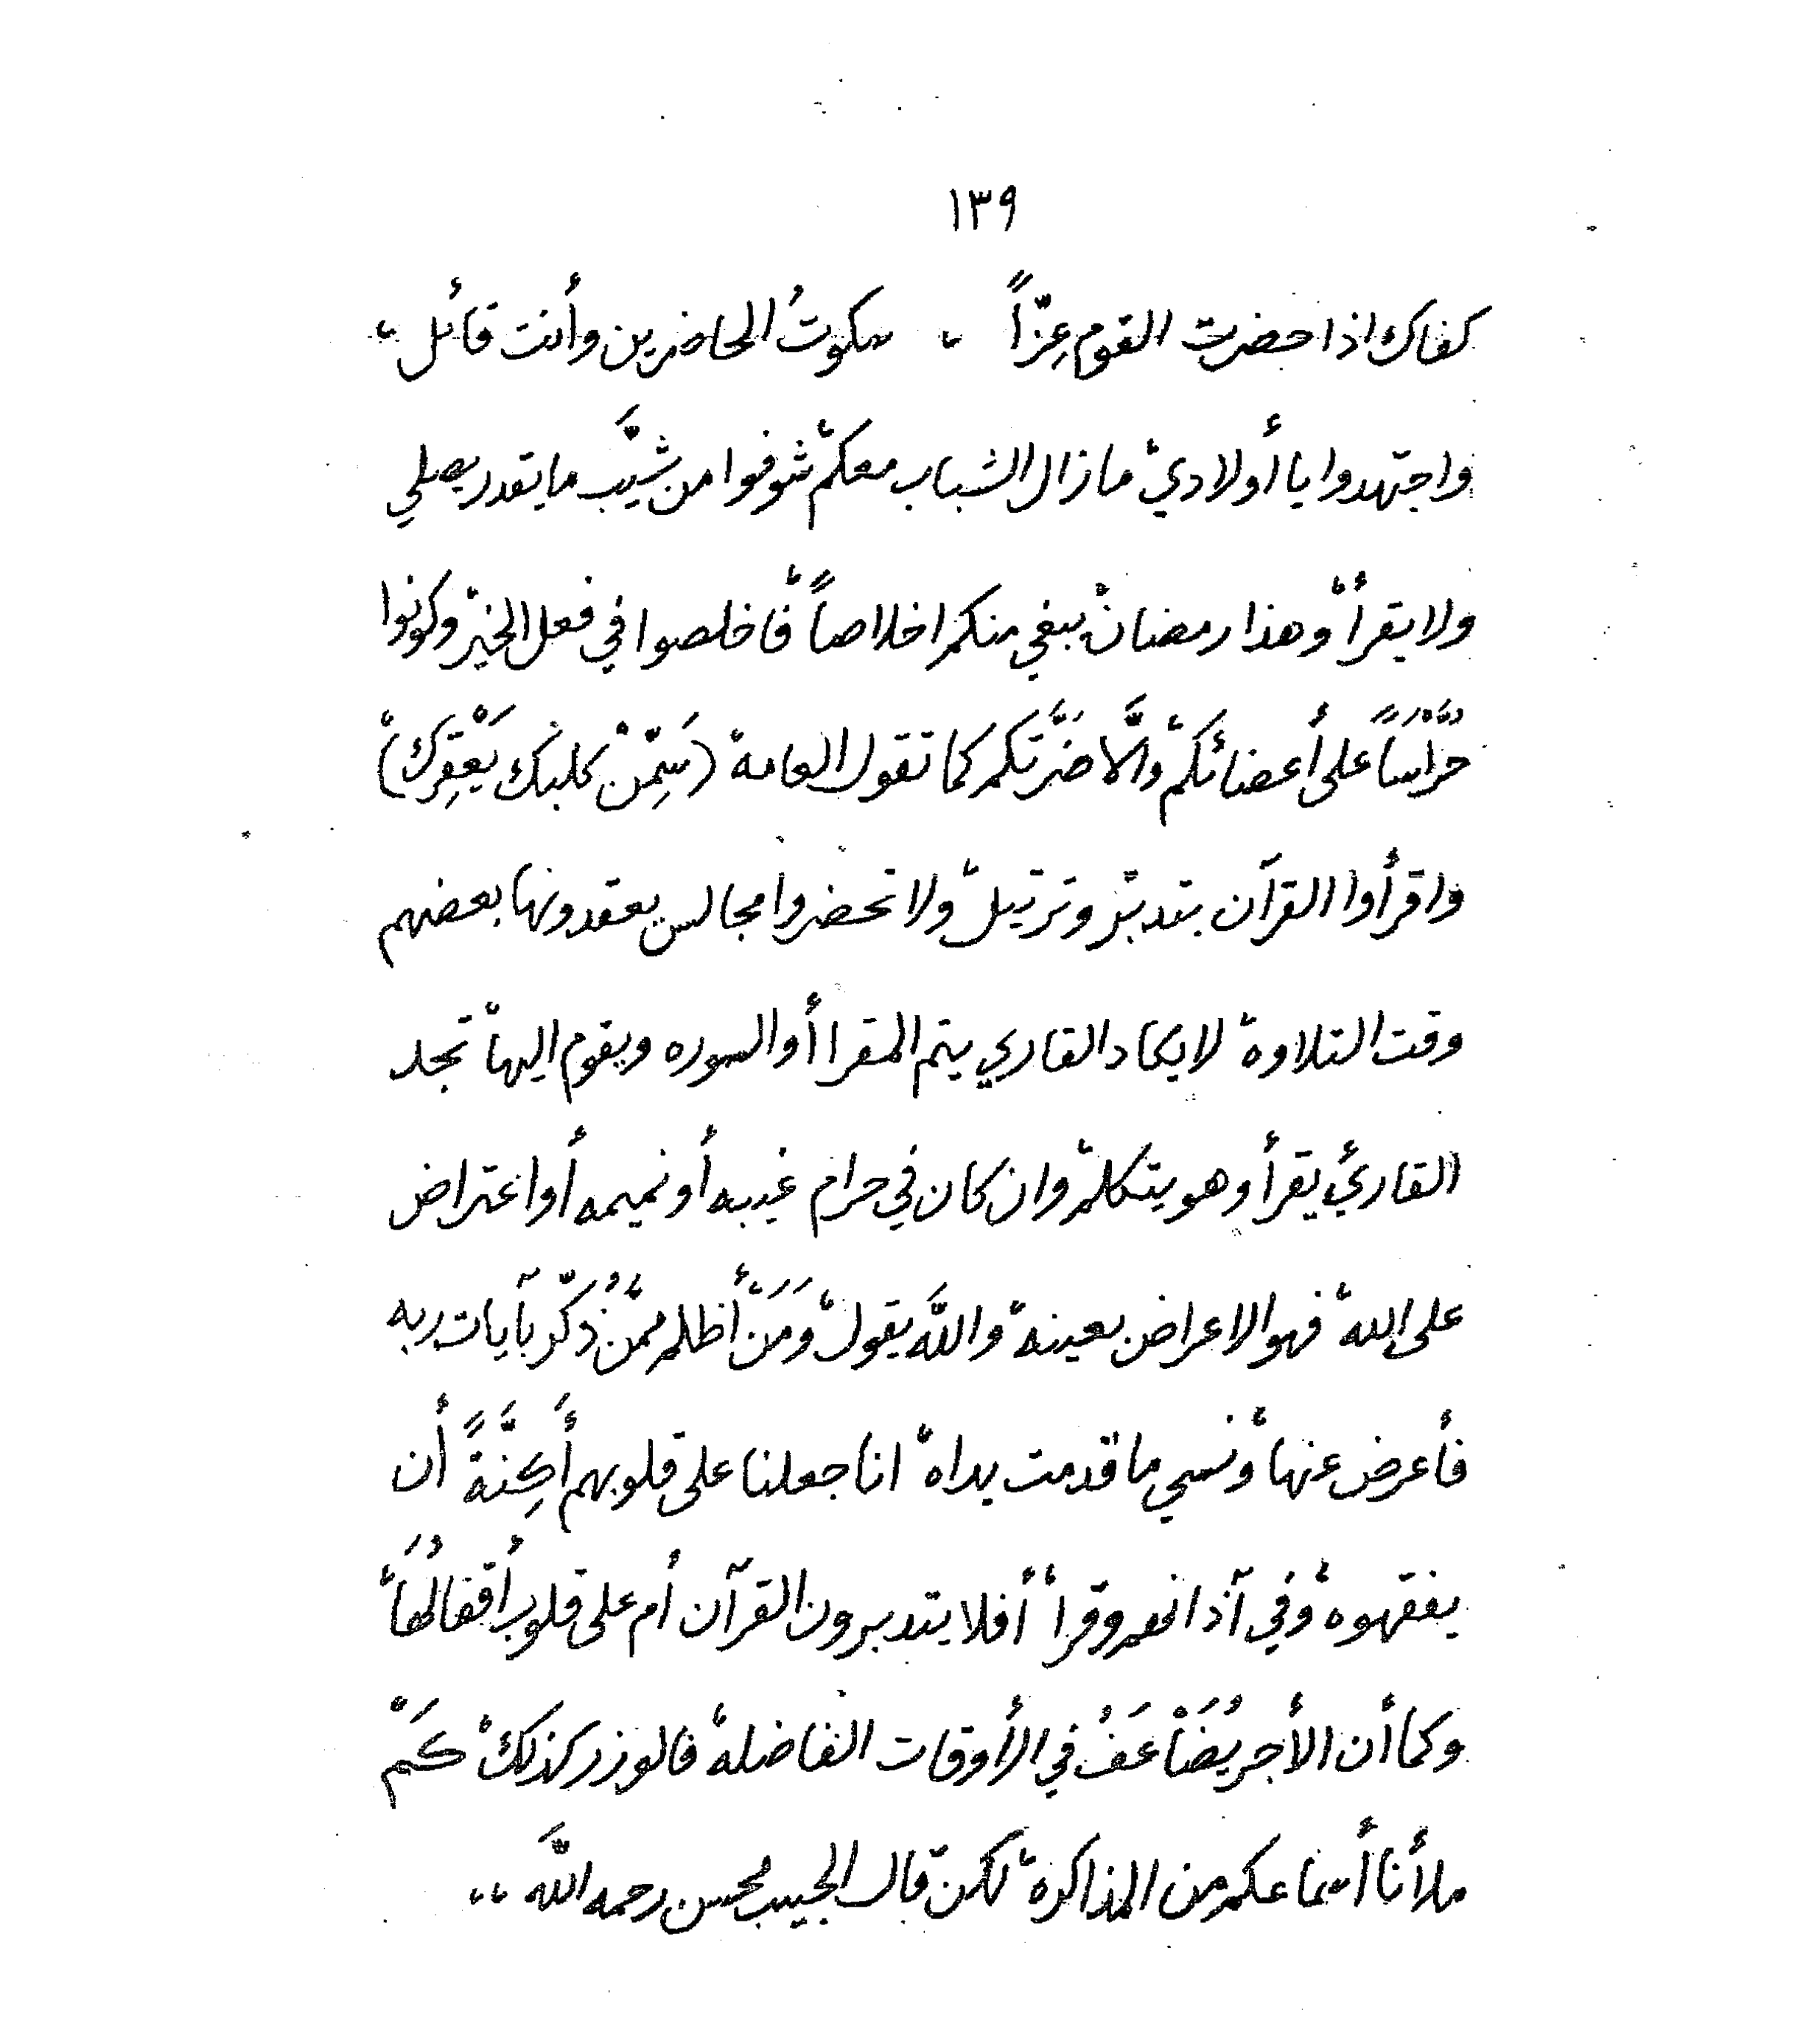 ١٣٩
كفاك اذا حضرت القوم عِزّاً ، سكوتُ الحاضرين وأنت قائل ،
واجتهدوا يا أولادي، ما زال الشباب معكم، شوفوا من شيَّب ما يقدر يصلي
ولا يقرأ، وهذا رمضان، يبغي منكم اخلاصاً، فاخلصوا في فعل الخير، وكونوا
حُرَّاسَاً على أعضائكم، والَّا ضرَّتكم كما تقول العامة، (سَمِّنْ كلبك يَعْقِرَك)،
واقرأوا القرآن بتدبّر وترتيل، ولا تحضروا مجالس يعقدونها بعضهم
وقت التلاوة، لا يكاد القاري يتم المقرا أو السوره ويقوم اليها، تجد
القاريْ يقرأ وهو يتكلم، وان كان في حرام غيبه أو نميمه أو اعتراض
على الله، فهو الاعراض بعينه، والله يقول، وَمَنْ أظلم ممَّنْ ذُكّر بآيات ربه
فأعرض عنها، ونسي ما قدمت يداه، انا جعلنا على قلوبهم أَكِنَّةً أن
يفقهوه، وفي آذانهم وقرأ، أفلا يتدبرون القرآن أم على قلوب أقفالُهَا،
وكما أن الأجر يُضَاْعَفُ في الأوقات الفاضلة، فالوزر كذلك، كَمْ
ملأنا أسماعكم من المذاكرة، لكن قال الحبيب محسن رحمه الله ،،